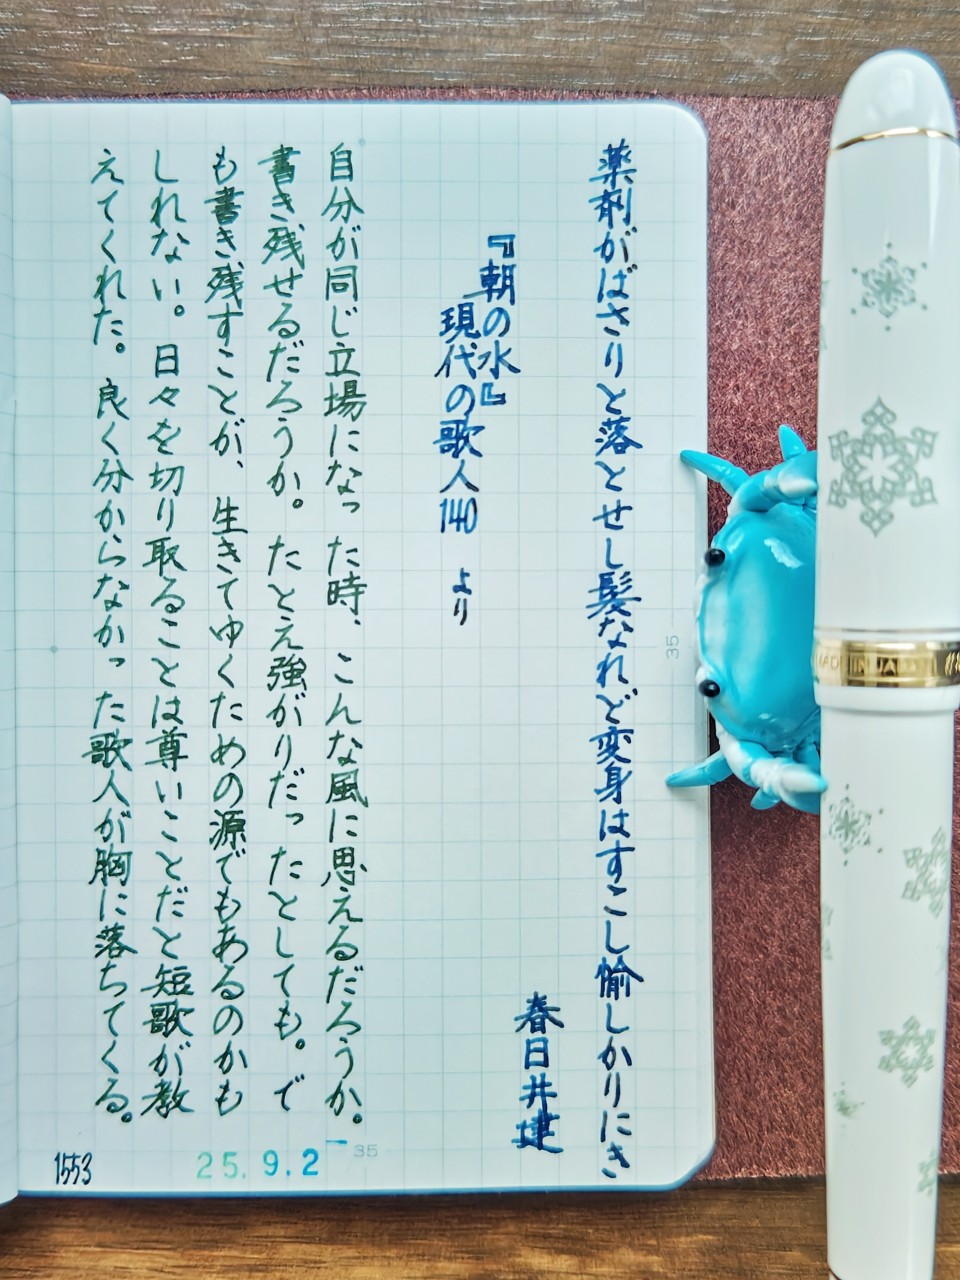 薬剤がばさりと落とせし髪なれど変身はすこし愉しかりにき
春日井建
『朝の水』
現代の歌人140 より
自分が同じ立場になった時、こんな風に思えるだろうか。
書き残せるだろうか。たとえ強がりだったとしても。で
も書き残すことが、生きてゆくための源でもあるのかも
しれない。日々を切り取ることは尊いことだと短歌が教
えてくれた。良く分からなかった歌人が胸に落ちてくる。
1553
25.9.2
35
35
MADE IN JAPAN